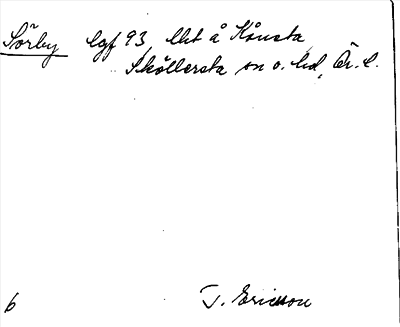 Sörby lgf 93, lht å Hånsta,
Sköllersta sn o. hd, Ör. l.
6 T. Ericsson